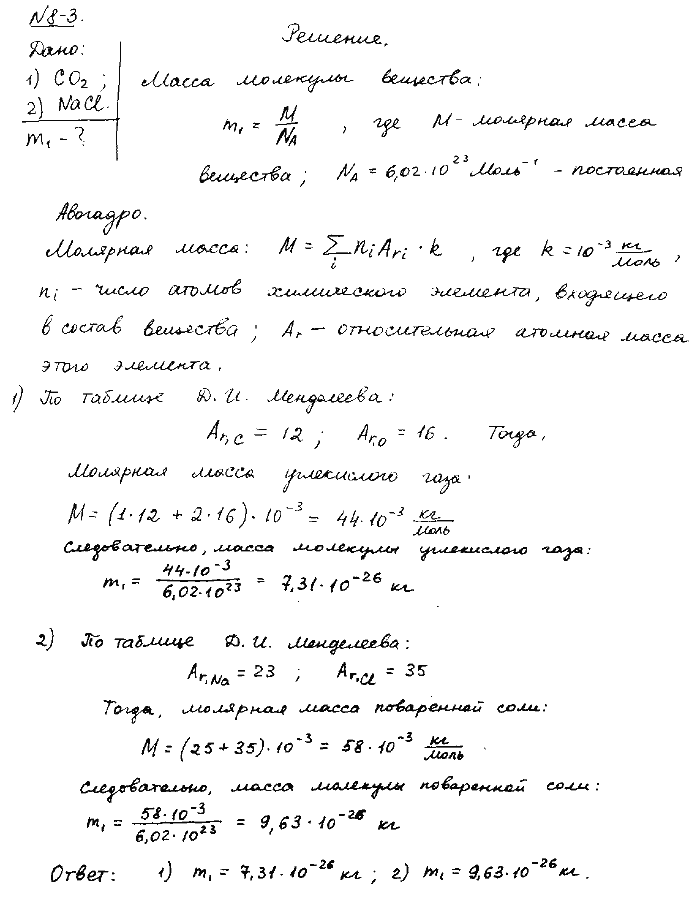 N8-3.
Дано:
Решение.
1) CO₂ ;
2) NaCl.
m₁ - ?
Масса молекулы вещества:
m₁ = M/N_A , где M - молярная масса
вещества; N_A = 6,02·10²³ Моль⁻¹ - постоянная
Авогадро.
Молярная масса: M = ∑_i n_i A_ri · k , где k = 10⁻³ кг/моль ,
n_i - число атомов химического элемента, входящего
в состав вещества; A_r - относительная атомная масса
этого элемента.
1) По таблице Д. И. Менделеева:
A_r,C = 12 ; A_r,O = 16 . Тогда,
Молярная масса углекислого газа:
M = (1·12 + 2·16)·10⁻³ = 44·10⁻³ кг/моль
Следовательно, масса молекулы углекислого газа:
m₁ = 44·10⁻³/6,02·10²³ = 7,31·10⁻²⁶ кг
2) По таблице Д. И. Менделеева:
A_r,Na = 23 ; A_r,Cl = 35
Тогда, молярная масса поваренной соли:
M = (25 + 35)·10⁻³ = 58·10⁻³ кг/моль
Следовательно, масса молекулы поваренной соли:
m₁ = 58·10⁻³/6,02·10²³ = 9,63·10⁻²⁶ кг
Ответ: 1) m₁ = 7,31·10⁻²⁶ кг ; 2) m₁ = 9,63·10⁻²⁶ кг .